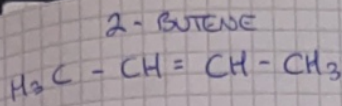 2 - BUTENE
H₃C - CH = CH - CH₃